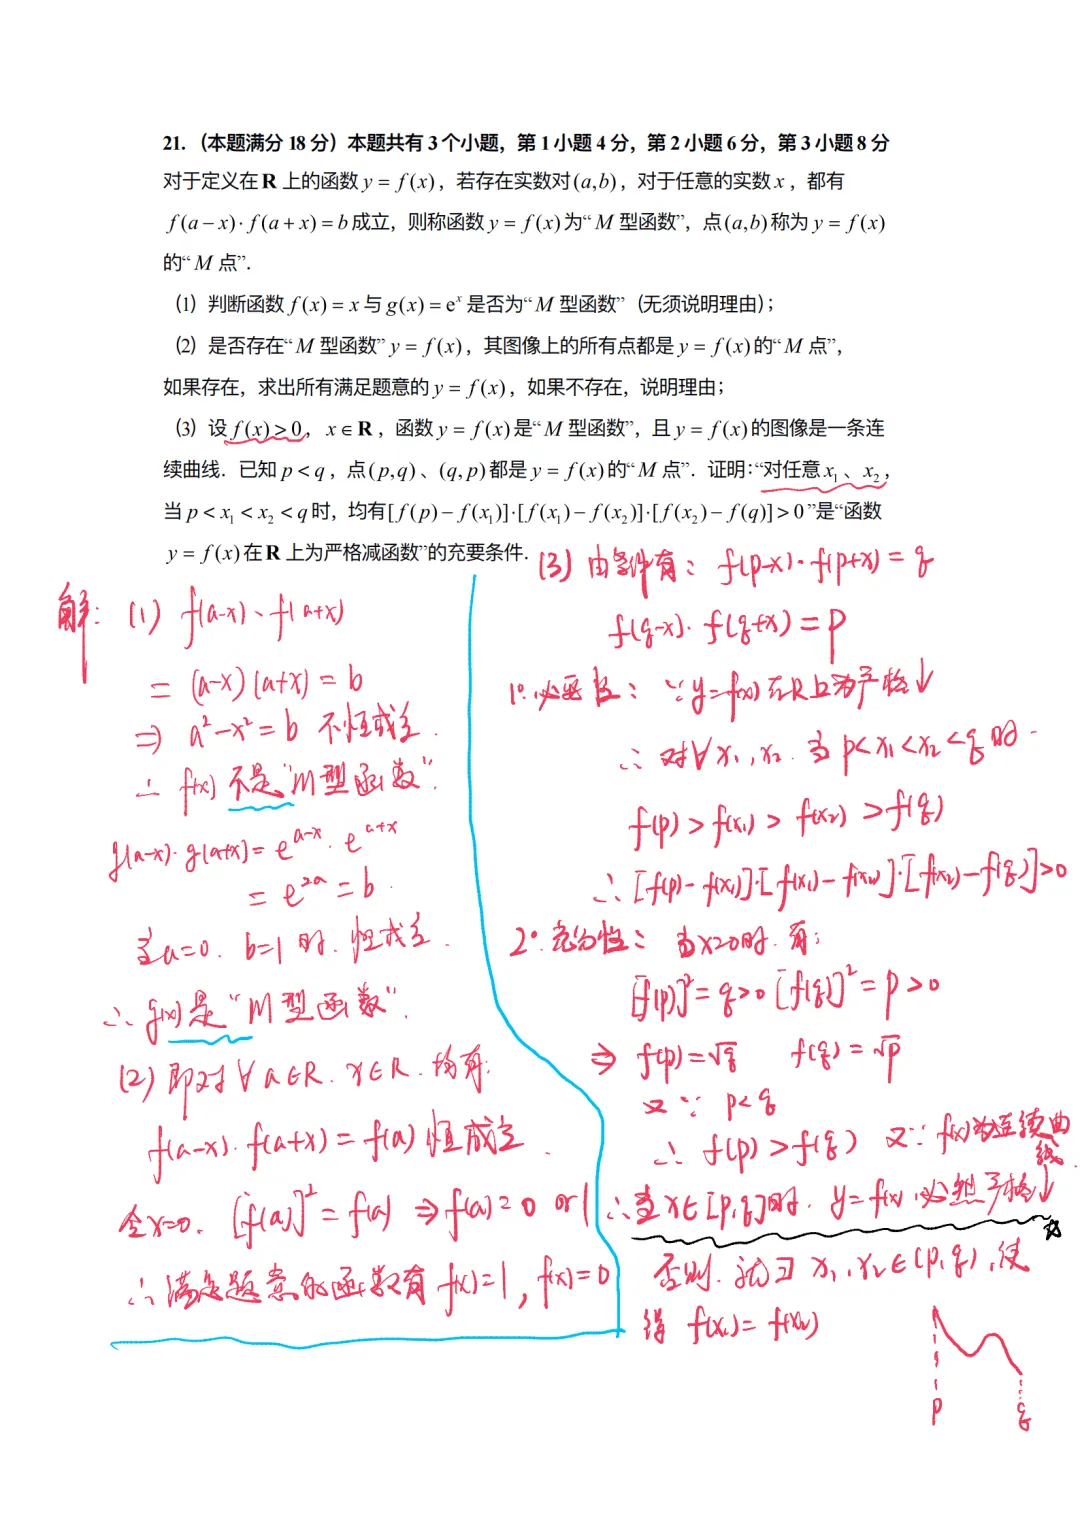 21.（本题满分 18 分）本题共有 3 个小题，第 1 小题 4 分，第 2 小题 6 分，第 3 小题 8 分
对于定义在 R 上的函数 y = f(x)，若存在实数对 (a,b)，对于任意的实数 x，都有
f(a−x)·f(a+x)=b 成立，则称函数 y = f(x) 为“M 型函数”，点 (a,b) 称为 y = f(x)
的“M 点”.
（1）判断函数 f(x) = x 与 g(x) = eˣ 是否为“M 型函数”（无须说明理由）；
（2）是否存在“M 型函数” y = f(x)，其图像上的所有点都是 y = f(x) 的“M 点”，
如果存在，求出所有满足题意的 y = f(x)，如果不存在，说明理由；
（3）设 f(x) > 0，x∈R，函数 y = f(x) 是“M 型函数”，且 y = f(x) 的图像是一条连
续曲线. 已知 p < q，点 (p,q)、(q,p) 都是 y = f(x) 的“M 点”. 证明：“对任意 x₁、x₂，
当 p < x₁ < x₂ < q 时，均有 [f(p)−f(x₁)]·[f(x₁)−f(x₂)]·[f(x₂)−f(q)] > 0”是“函数
y = f(x) 在 R 上为严格减函数”的充要条件.
解：(1) f(a-x)、f(a+x)
= (a-x)(a+x) = b
⇒ a²-x² = b 不恒成立.
∴ f(x) 不是“M型函数”.
g(a-x)·g(a+x) = e^{a-x}·e^{a+x}
= e^{2a} = b.
当a=0. b=1 时. 恒成立.
∴ g(x) 是“M型函数”.
(2) 即对 ∀ a∈R. x∈R. 均有:
f(a-x)·f(a+x) = f(a) 恒成立.
令x=0. [f(a)]² = f(a) ⇒ f(a)=0 or 1
∴ 满足题意的函数有 f(x)=1, f(x)=0
(3) 由条件有: f(p-x)·f(p+x) = q
f(q-x)·f(q+x) = p
1°. 必要性: ∵ y=f(x) 在R上为严格↓
∴ 对∀x₁,x₂. 当 p<x₁<x₂<q 时.
f(p) > f(x₁) > f(x₂) > f(q)
∴ [f(p)-f(x₁)]·[f(x₁)-f(x₂)]·[f(x₂)-f(q)]>0
2°. 充分性: 当x=0时. 有:
[f(p)]²=q>0 [f(q)]²=p>0
⇒ f(p)=√q f(q)=√p
又∵ p<q
∴ f(p)>f(q) 又∵ f(x)为连续曲线
∴当x∈[p,q]时. y=f(x) 必然严格↓
否则. 就∃ x₁,x₂∈(p,q), 使
得 f(x₁)=f(x₂)
p q